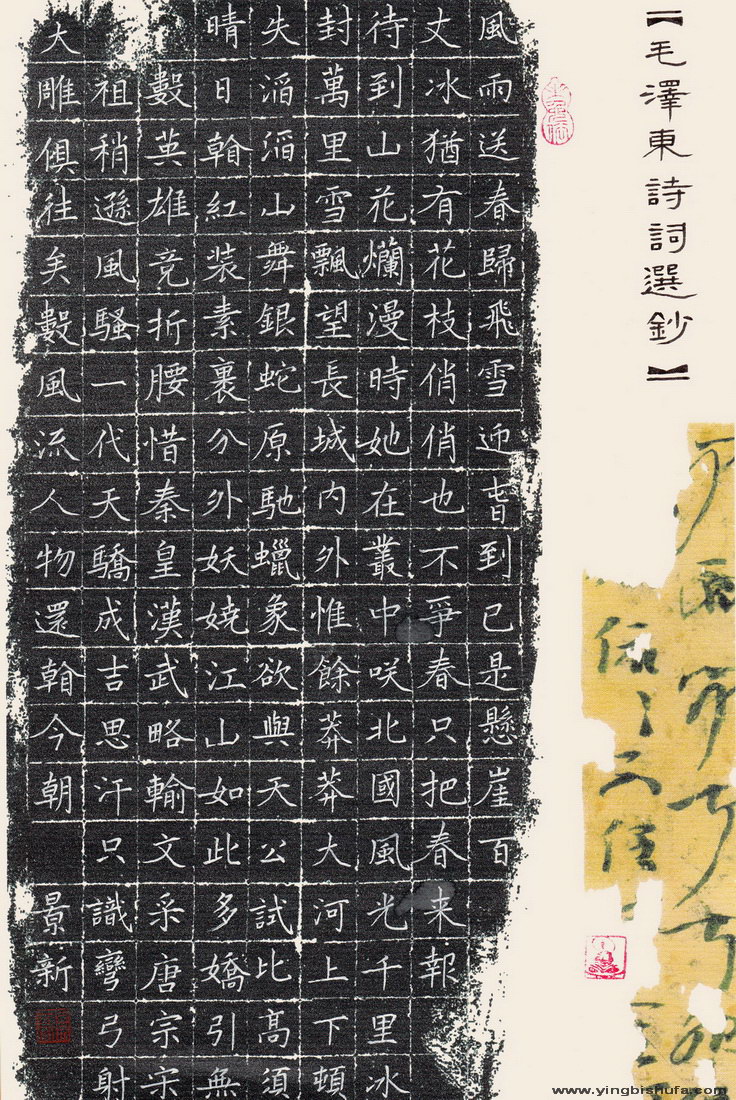 【毛澤東詩詞選鈔】
風雨送春歸飛雪迎旾到已是懸崖百
丈冰猶有花枝俏俏也不爭春只把春來報
待到山花爛漫時她在叢中咲北國風光千里冰
封萬里雪飄望長城內外惟餘莽莽大河上下頓
失滔滔山舞銀蛇原馳蠟象欲與天公試比髙須
晴日翰紅装素裹分外妖嬈江山如此多嬌引無
數英雄竞折腰惜秦皇漢武略輸文采唐宗宋
祖稍遜風騷一代天驕成吉思汗只識彎弓射
大雕俱往矣數風流人物還翰今朝 景新
www.yingbishufa.com